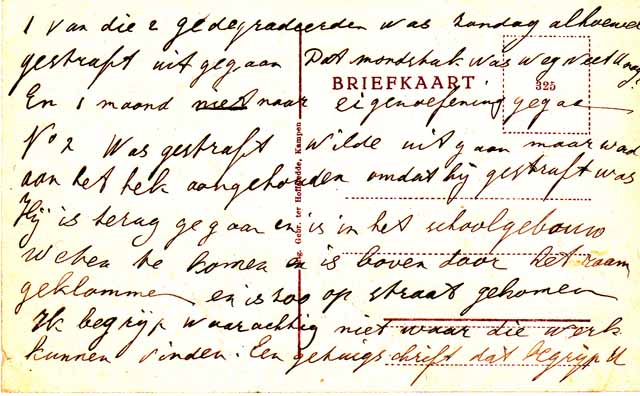 1 van die 2 gedegradeerden was zondag alhoewel
gestraft uit gegaan Dat mondstuk was weg weet U nog?
BRIEFKAART
325
En 1 maand niet naar eigenoefening gegaan
No 2 Was gestraft wilde uit gaan maar wad
aan het hek aangehouden omdat hij gestraft was
Hij is terug gegaan en is in het schoolgebouw
weten te komen en is boven door het raam
geklommen en is zoo op straat gekomen
Ik begrijp waarachtig niet waar die werk
kunnen vinden. Een getuigschrift dat begrijp U
Uitg. Gebr. ter Hoffstedde, Kampen